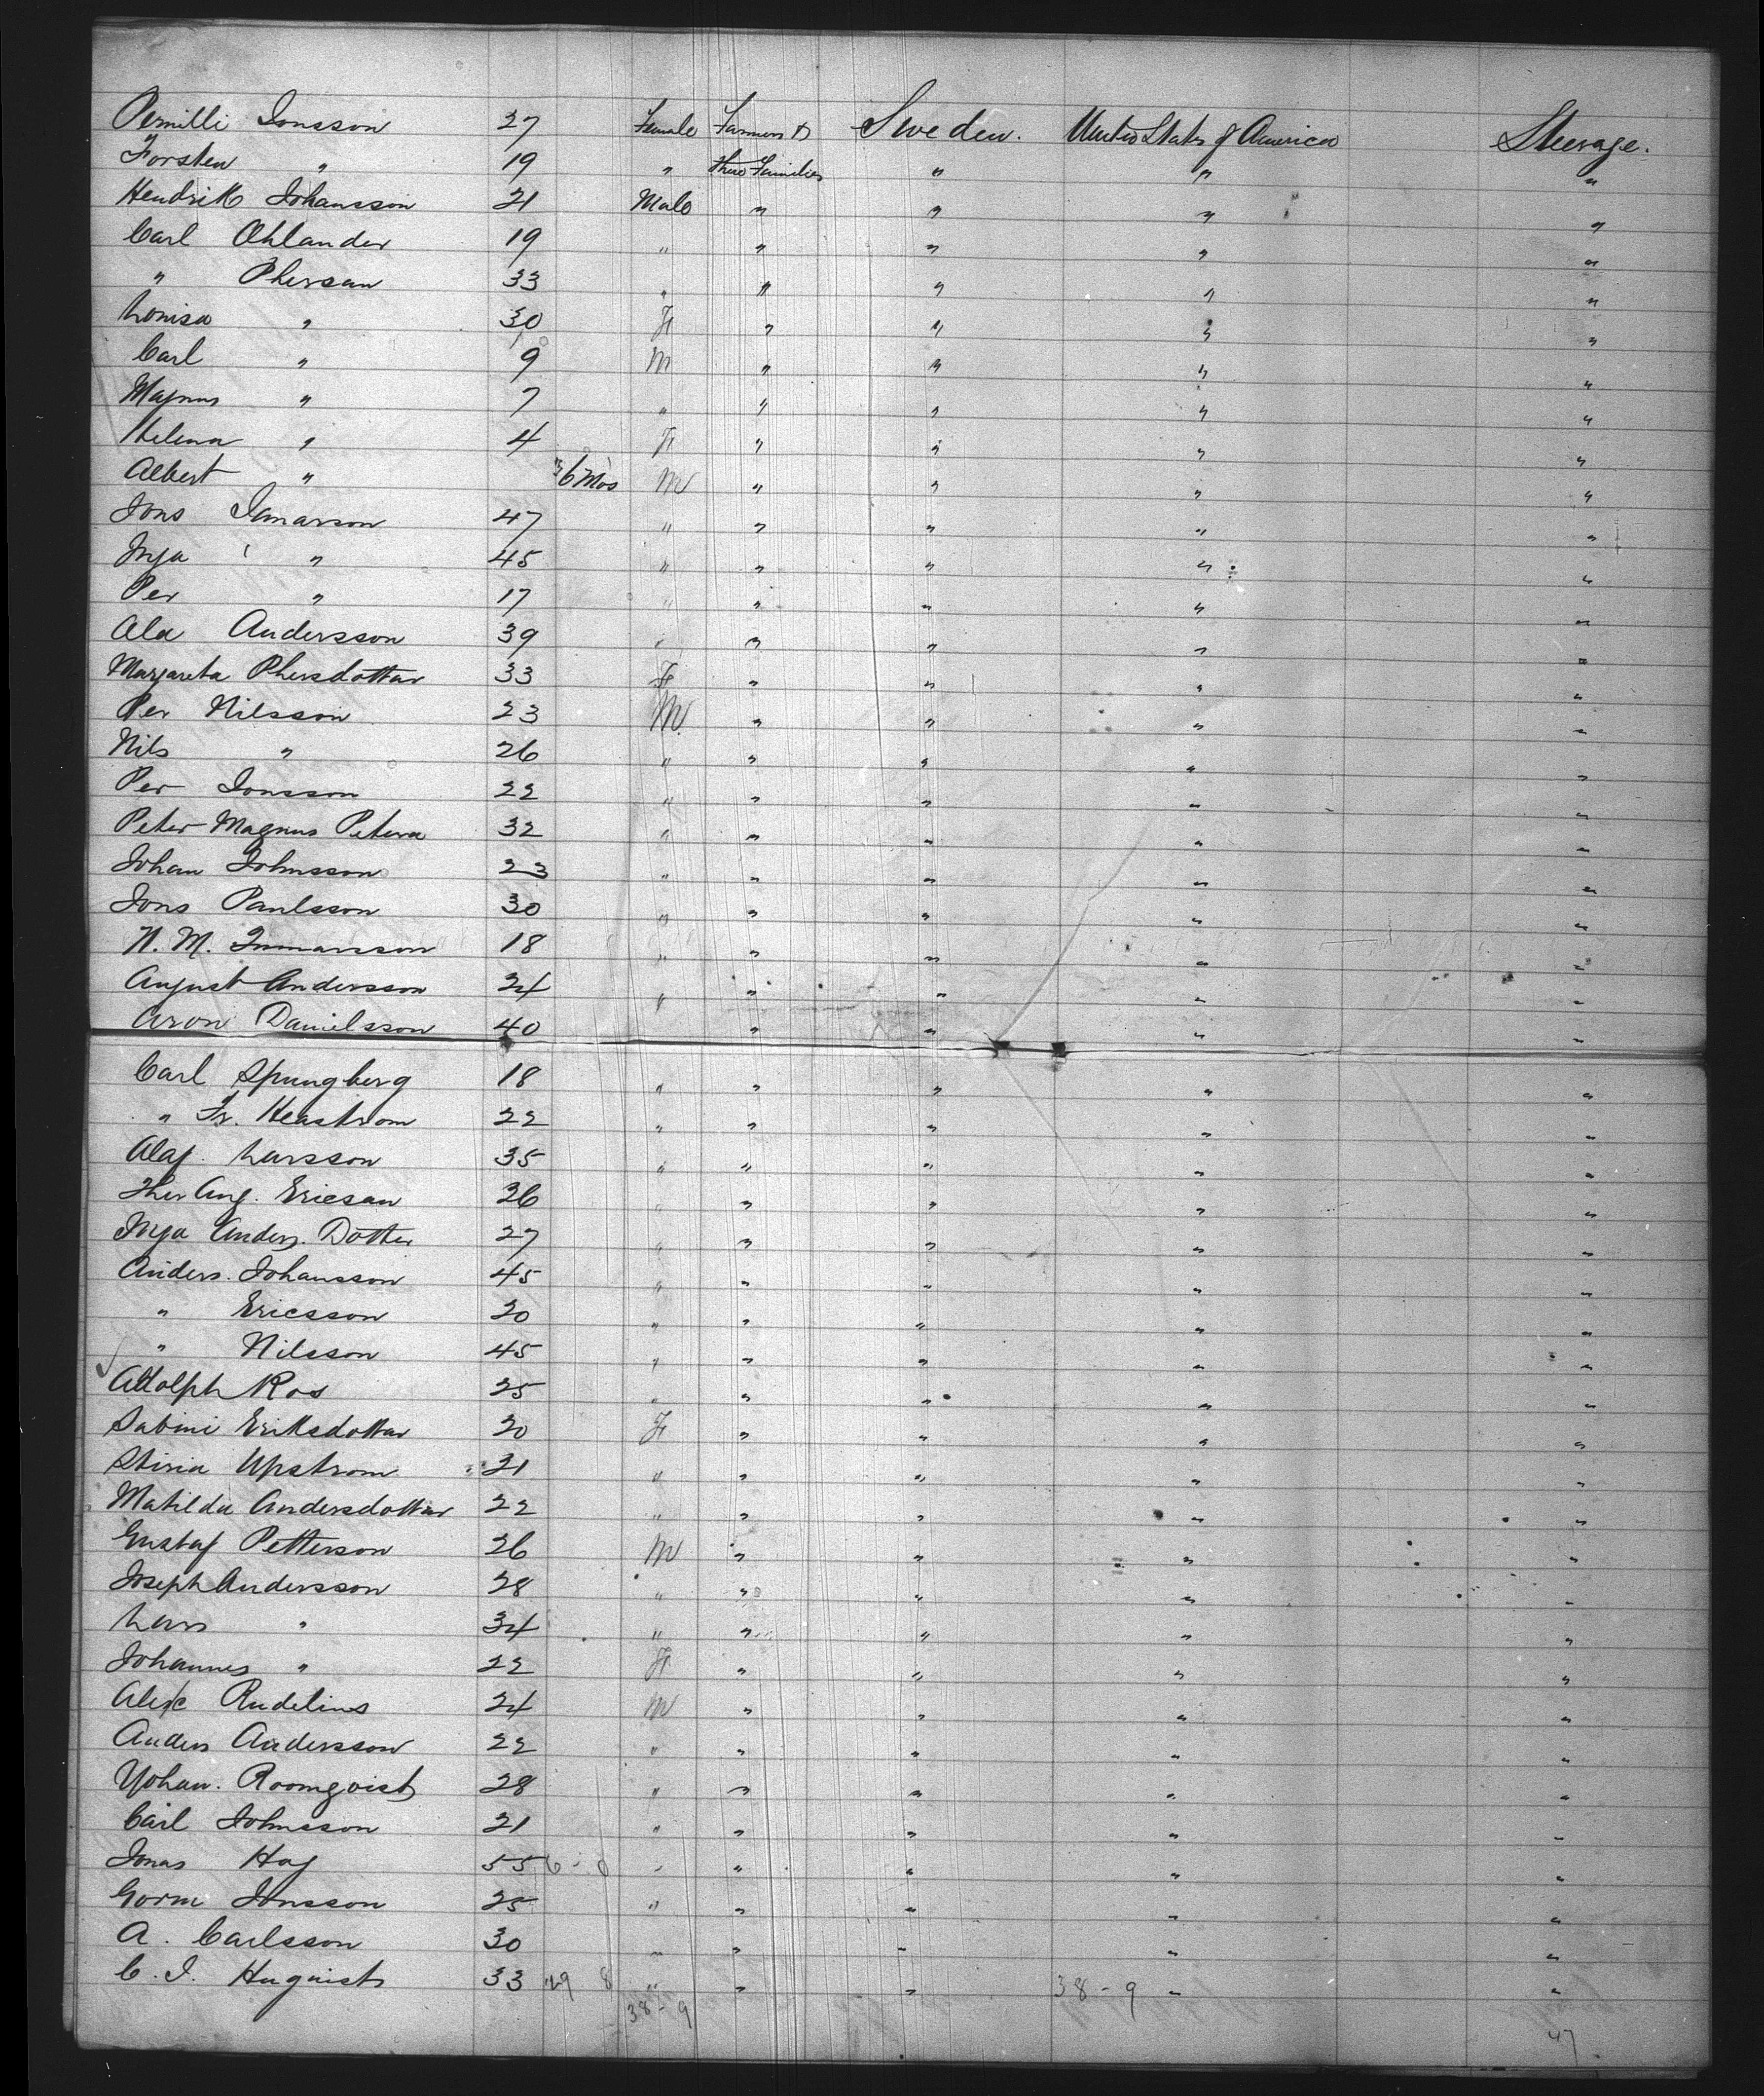 Pernilli Jonsson 27 Female Farmers & Sweden. United States of America Steerage.
Torsten " 19 " their Families " " "
Hendrik Johansson 21 Male " " " "
Carl Ohlander 19 " " " " "
" Phersan 33 " " " " "
Lovisa " 30 F " " " "
Carl " 9 M " " " "
Magnus " 7 " " " " "
Helena " 4 F " " " "
Albert " 6 Mos M " " " "
Jons Inmarson 47 " " " " "
Inga " 45 " " " " "
Per " 17 " " " " "
Ola Andersson 39 " " " " "
Margareta Phersdottar 33 F " " " "
Per Nilsson 23 M " " " "
Nils " 26 " " " " "
Per Jonsson 22 " " " " "
Peter Magnus Petera 32 " " " " "
Johan Johnsson 23 " " " " "
Jons Paulsson 30 " " " " "
N. M. Inmarsson 18 " " " " "
August Andersson 24 " " " " "
Aron Danielsson 40 " " " "
Carl Spungberg 18 " " " " "
" Fr. Heastrom 22 " " " " "
Olaf Larsson 35 " " " " "
Ther Aug. Ericsan 26 " " " "
Inga Anders. Dotter 27 " " " " "
Anders. Johansson 45 " " " " "
" Ericsson 20 " " " " "
" Nilsson 45 " " " " "
Adolph Ros 25 " " " " "
Sabini Eriksdottar 20 F " " " "
Stiria Upstrom 21 " " " " "
Matilda Andersdottar 22 " " " " "
Gustaf Petterson 26 M " " " "
Joseph Andersson 28 " " " " "
Lars " 34 " " " " "
Johannes " 22 F " " " "
Alex Rudelius 24 M " " " "
Anders Andersson 22 " " " " "
Yohan. Roomqvist 28 " " " " "
Carl Johnsson 21 " " " " "
Jonas Hag 55 " " " " "
Gorm Jonsson 25 " " " " "
A. Carlsson 30 " " " " "
C. J. Huquist 33 49 8 " " " 38-9 " "
38-9
47